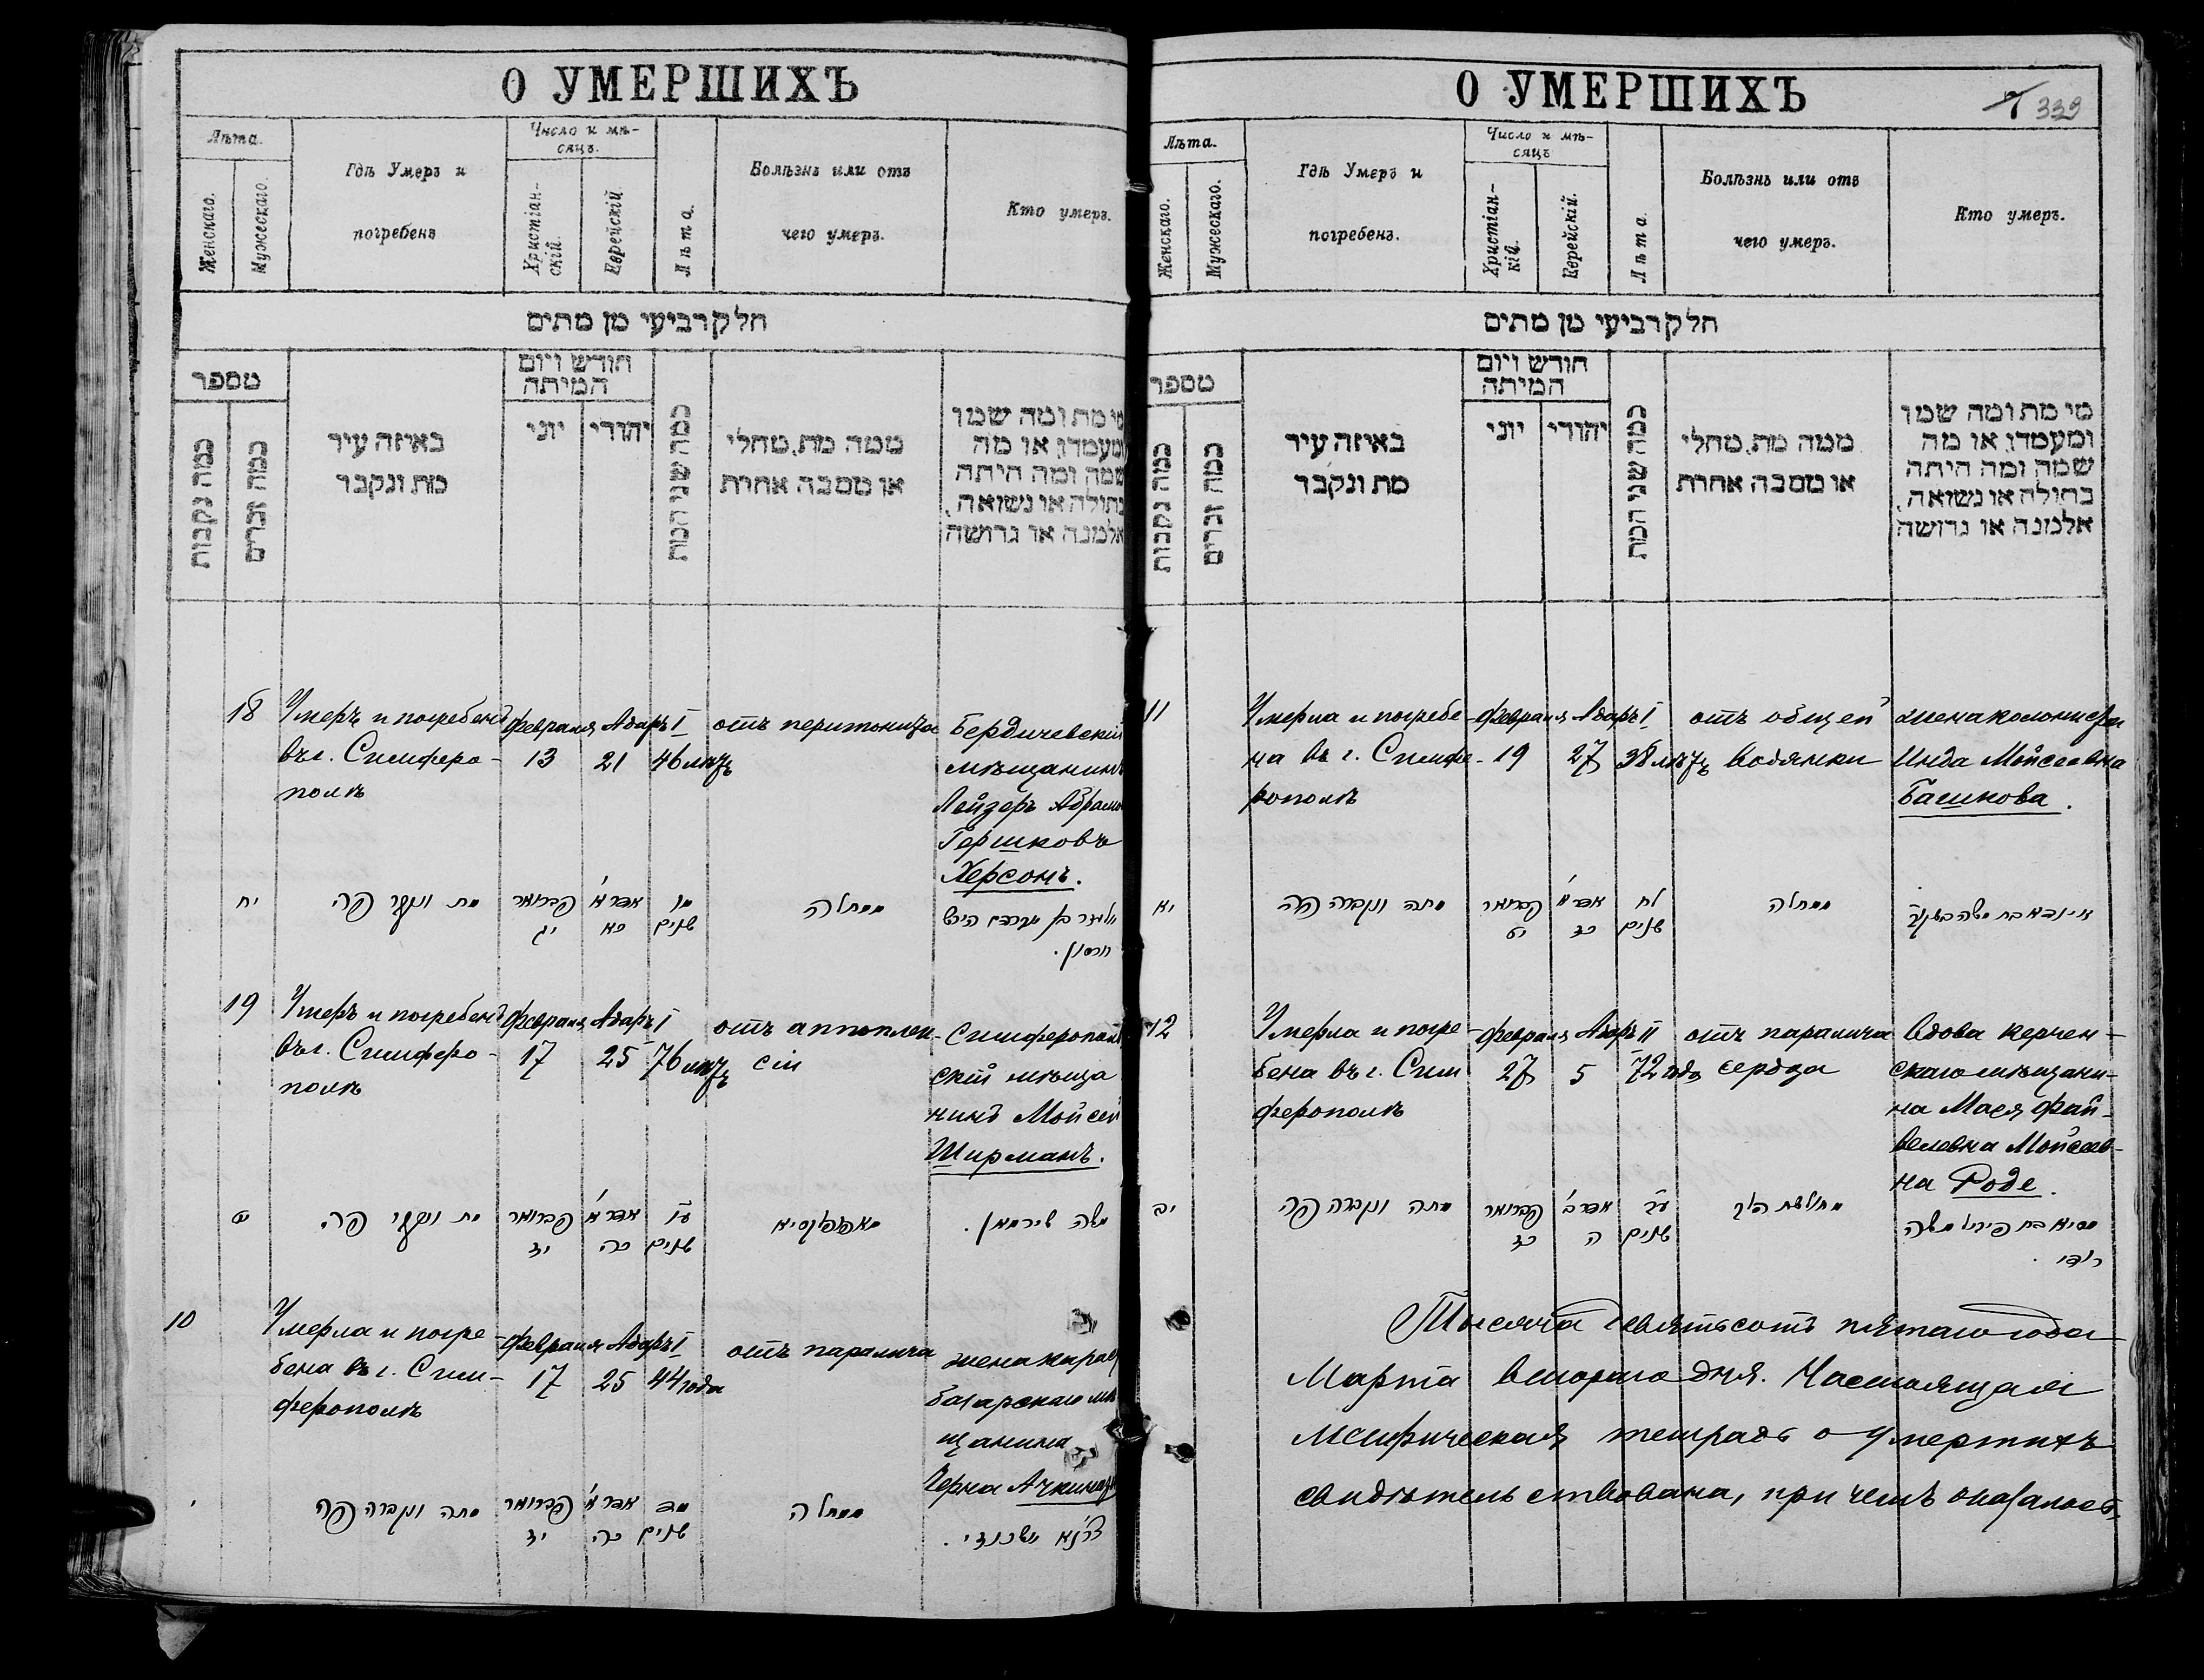 О УМЕРШИХЪ
Лѣта.
Женскаго.
Мужескаго.
Гдѣ Умеръ и
погребенъ
Число и мѣ-
сяцъ.
Христіан-
скій.
Еврейскій
Лѣта.
Болѣзнь или отъ
чего умеръ.
Кто умеръ.
חלק רביעי מן מתים
מספר
כמה נקבות
כמה זכרים
באיזה עיר
מת ונקבר
חודש ויום
המיתה
יוני
יהודי
כמה שני המת
ממה מת, מחלי
או מסבה אחרת
מי מת ומה שמו
ומעמדו, או מה
שמה ומה היתה
בתולה או נשואה,
אלמנה או גרושה
18
Умеръ и погребенъ
въ г. Симферо-
полѣ
Февраля
13
Адаръ I
21
46 лѣтъ
отъ перитонита
Бердичевскій
мѣщанинъ
Лейзеръ Абрамъ
Гершковъ
Херсонъ.
יח
מת ונקבר פה
פברואר
יג
אדר א׳
כא
מו
שנים
ממחלה
חרסון.
19
Умеръ и погребенъ
въ г. Симферо-
полѣ
Февраля
17
Адаръ I
25
76 лѣтъ
отъ апоплек-
сіи
Симферополь
скій мѣща
нинъ Мойсей
Ширманъ.
יט
מת ונקבר פה
פברואר
יז
אדר א׳
כה
עו
שנים
משה שירמאן.
10
Умерла и погре-
бена въ г. Сим-
ферополѣ
Февраля
17
Адаръ I
25
44 года
отъ паралича
жена карасу
базарскаго мѣ
щанина
Черна Ачкинази
מתה ונקברה פה
פברואר
יז
אדר א׳
כה
מד
שנים
ממחלה
О УМЕРШИХЪ
7 339
Лѣта.
Женскаго.
Мужескаго.
Гдѣ Умеръ и
погребенъ.
Число и мѣ-
сяцъ
Христіан-
кій.
Еврейскій.
Лѣта.
Болѣзнь или отъ
чего умеръ.
Кто умеръ.
חלק רביעי מן מתים
מספר
כמה נקבות
כמה זכרים
באיזה עיר
מת ונקבר
חודש ויום
המיתה
יוני
יהודי
כמה שני המת
ממה מת, מחלי
או מסבה אחרת
מי מת ומה שמו
ומעמדו, או מה
שמה ומה היתה
בתולה או נשואה,
אלמנה או גרושה
11
Умерла и погребе-
на въ г. Симфе-
рополѣ
Февраля
19
Адаръ I
27
38 лѣтъ
отъ общей
водянки
жена колониста
Инда Мойсеевна
Башкова.
יא
מתה ונקברה פה
פברואר
יט
אדר א׳
כז
לח
שנים
ממחלה
12
Умерла и погре-
бена въ г. Сим
ферополѣ
Февраля
27
Адаръ II
5
72 года
отъ паралича
сердца
вдова керчен-
скаго мѣщани-
на Мася Фай-
велевна Мойсеев-
на Роде.
יב
מתה ונקברה פה
פברואר
כז
אדר ב׳
ה
עב
שנים
Тысяча девятьсотъ пятаго года
Марта второго дня. Настоящая
метрическая тетрадь о умершихъ
свидѣтельствована, при чемъ оказалось